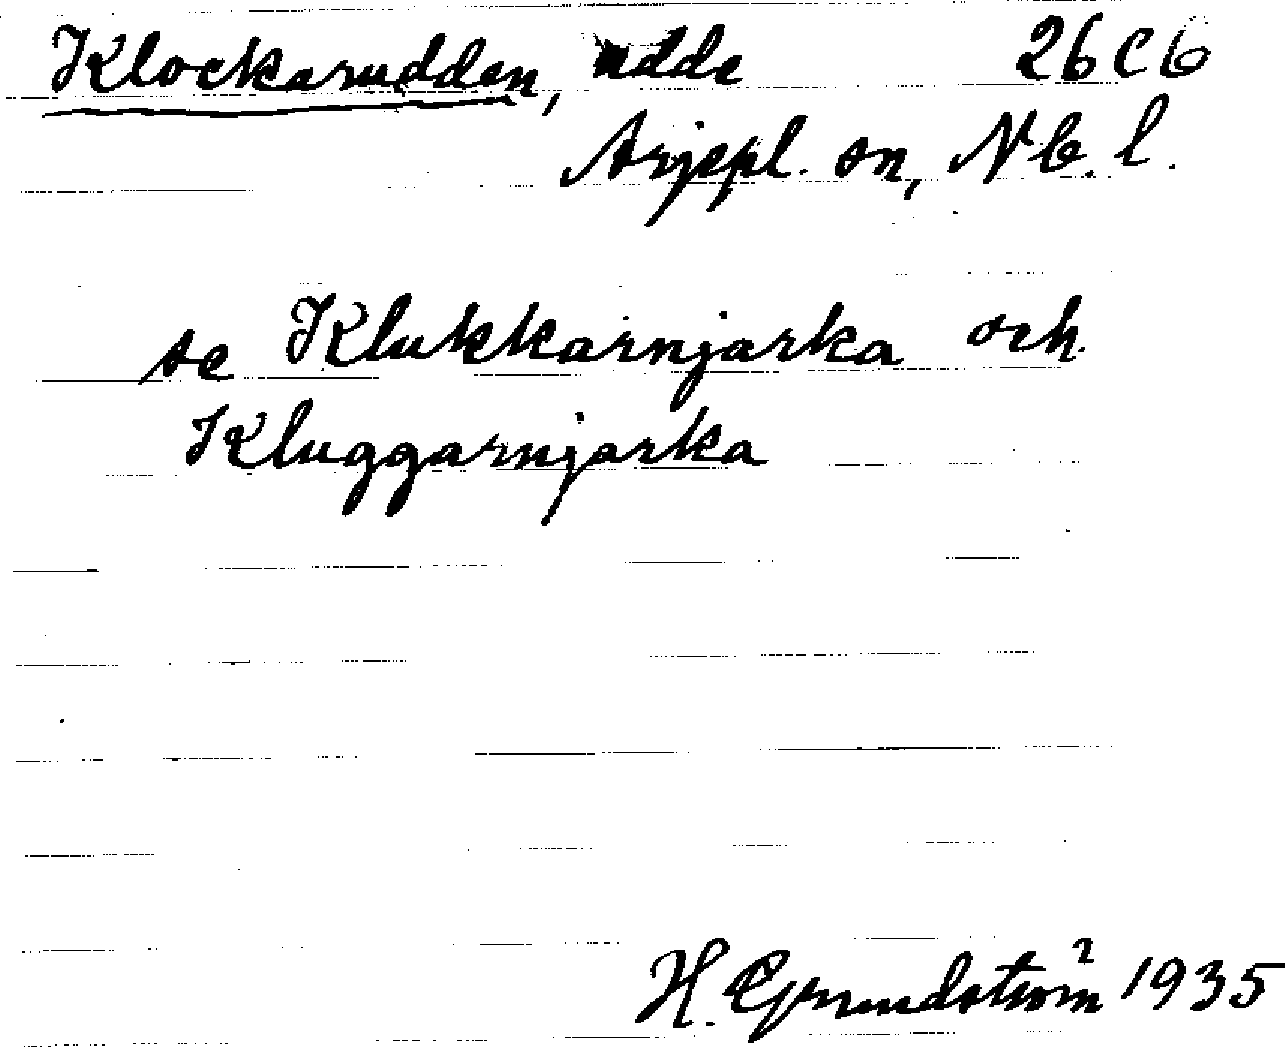 Klockarudden, udde 26 C 6
Arjepl. sn, Nb. l.
se Klukkarnjarka och
Kluggarnjarka
H. Grundström 1935